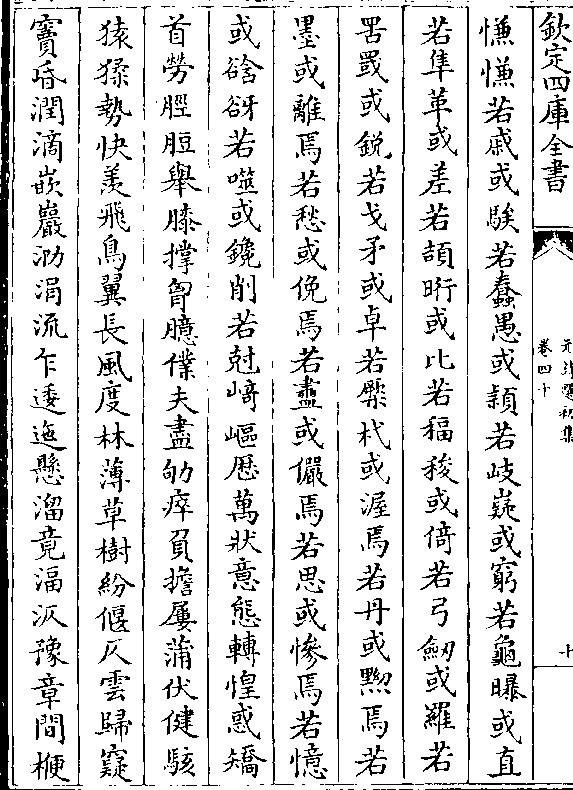 欽定四庫全書
元詩選初集
卷四十
十
慊慊若戚或騃若蠢愚或頴若岐嶷或窮若龜曝或直
若隼革或差若頡䀪或比若稫稜或倚若弓劒或羅若
罟罭或鋭若戈矛或卓若檠杙或渥焉若丹或黙焉若
墨或離焉若愁或俛焉若盡或儼焉若思或惨焉若憶
或谽谺若噬或鑱削若尅﨑嶇歴萬狀意態轉惶惑矯
首勞脛脰舉膝撑胷臆僕夫盡劬瘁負擔屢蒲伏健駭
猿猱勢快羨飛鳥翼長風度林薄草樹紛偃仄雲歸窾
竇昏潤滴嵌巖泐涓流乍逶迤懸溜竟湢汳豫章間楩